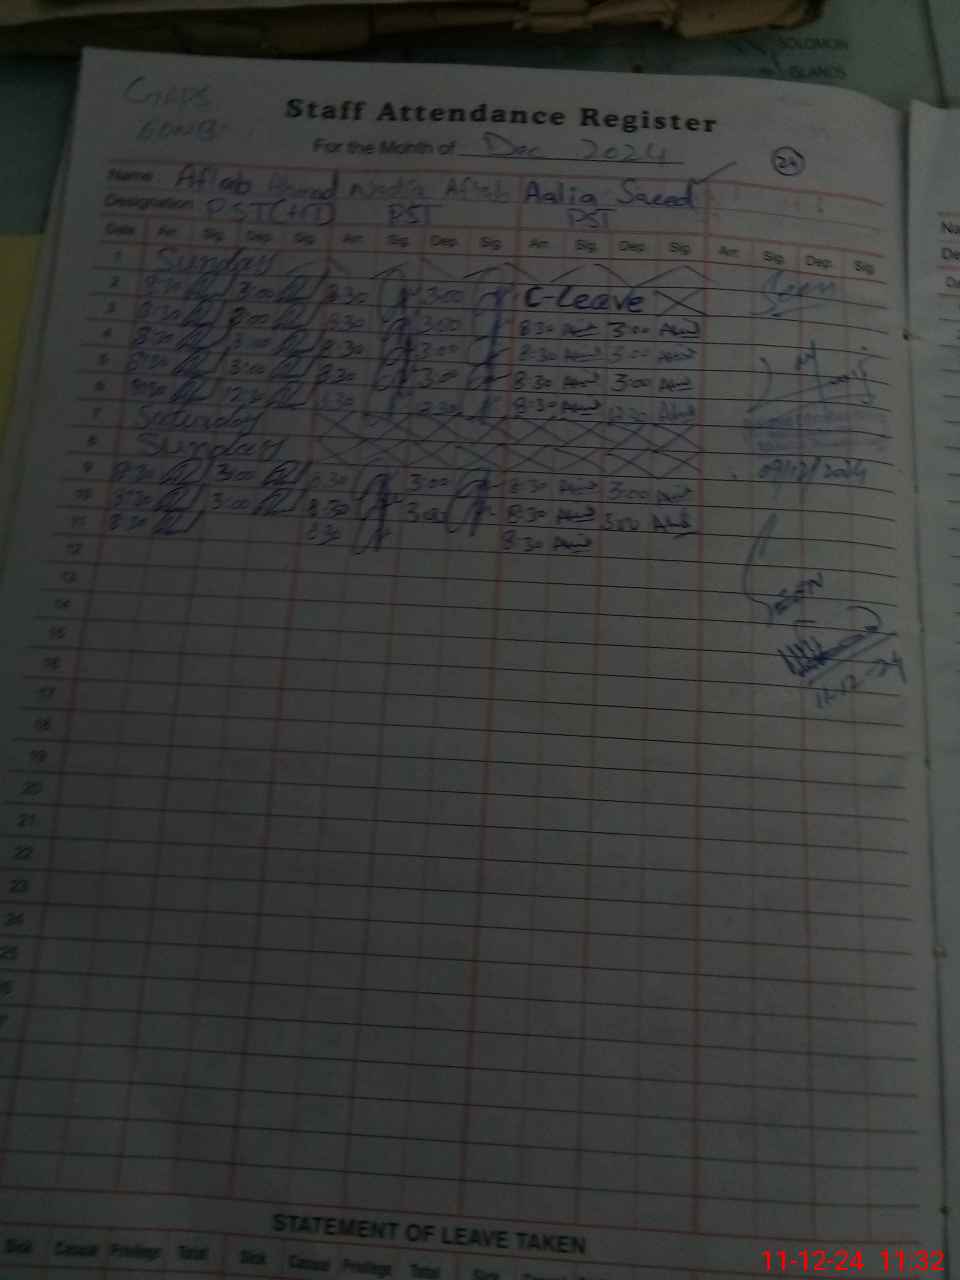 SOLOMON
ISLANDS
GGPS
Staff Attendance Register
For the Month of Dec 2024
24
Name Aftab Ahmad Nadia Aftab Aalia Saeed
Designation PST(HT) PST PST
Date Arr. Sig. Dep. Sig. Arr. Sig. Dep. Sig. Arr. Sig. Dep. Sig. Arr. Sig. Dep. Sig.
1 Sunday
2 8:30 3:00 8:30 3:00 C-Leave
3 8:30 3:00 8:30 3:00 8:30 3:00
4 8:30 3:00 8:30 3:00 8:30 3:00
5 8:30 3:00 8:30 3:00 8:30 3:00
6 8:30 12:30 8:30 12:30 8:30 12:30
7 Saturday
8 Sunday
9 8:30 3:00 8:30 3:00 8:30 3:00
09/12/2024
10 8:30 3:00 8:30 3:00 8:30 3:00
11 8:30 8:30 8:30
12
13
14
15
16
11-12-24
17
18
19
20
21
22
23
24
25
STATEMENT OF LEAVE TAKEN
Sick Casual Privilege Total Sick Casual Privilege Total Sick
11-12-24 11:32